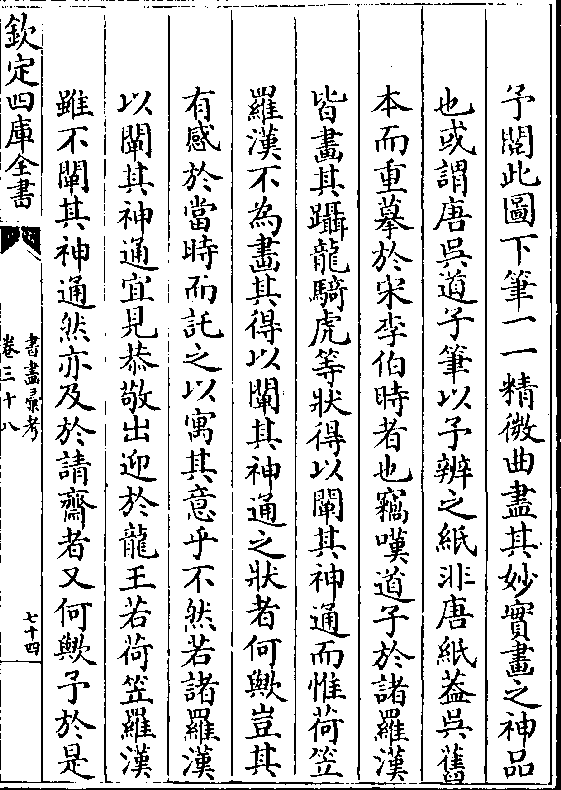 予閱此圖下筆一一精微曲盡其妙實畫之神品
也或謂唐吳道子筆以予辨之紙非唐紙葢吳舊
本而重摹於宋李伯時者也竊嘆道子於諸羅漢
皆畫其躡龍騎虎等狀得以闡其神通而惟荷笠
羅漢不為畫其得以闡其神通之狀者何歟豈其
有感於當時而託之以寓其意乎不然若諸羅漢
以闡其神通宜見恭敬出迎於龍王若荷笠羅漢
雖不闡其神通然亦及於請齋者又何歟予於是
欽定四庫全書
書畫彚考
卷三十八
七十四